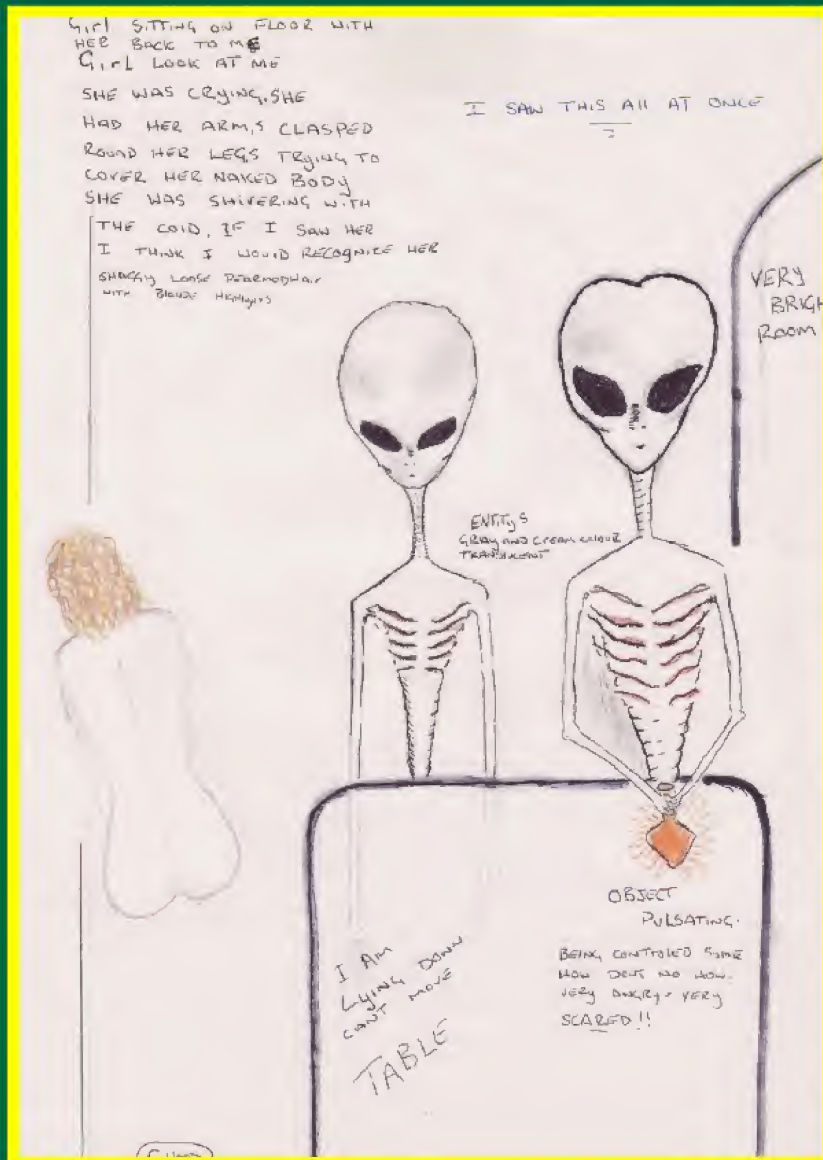 GIrL SITTING ON FLOOR WITH
HER BACK TO ME
GIrL LOOK AT ME
SHE WAS CRYING. SHE
HAD HER ARM,S CLASPED
ROUND HER LEGS TRYING TO
COVER HER NAKED BODY
SHE WAS SHIVERING WITH
THE COLD, IF I SAW HER
I THINK I WOULD RECOGNIZE HER
SHAGGY LOOSE
WITH BLONDE HIGHLIGHTS
I SAW THIS All AT ONCE
?
VERY
BRIGH
ROOM
ENTITYS
GRAY AND CREAM COLOUR
TRANSLUCENT
OBJECT
PULSATING.
I AM
LYING DOWN
CANT MOVE
TABLE
BEING CONTROLED SOME
HOW DONT NO HOW.
VERY ANGRY - VERY
SCARED!!